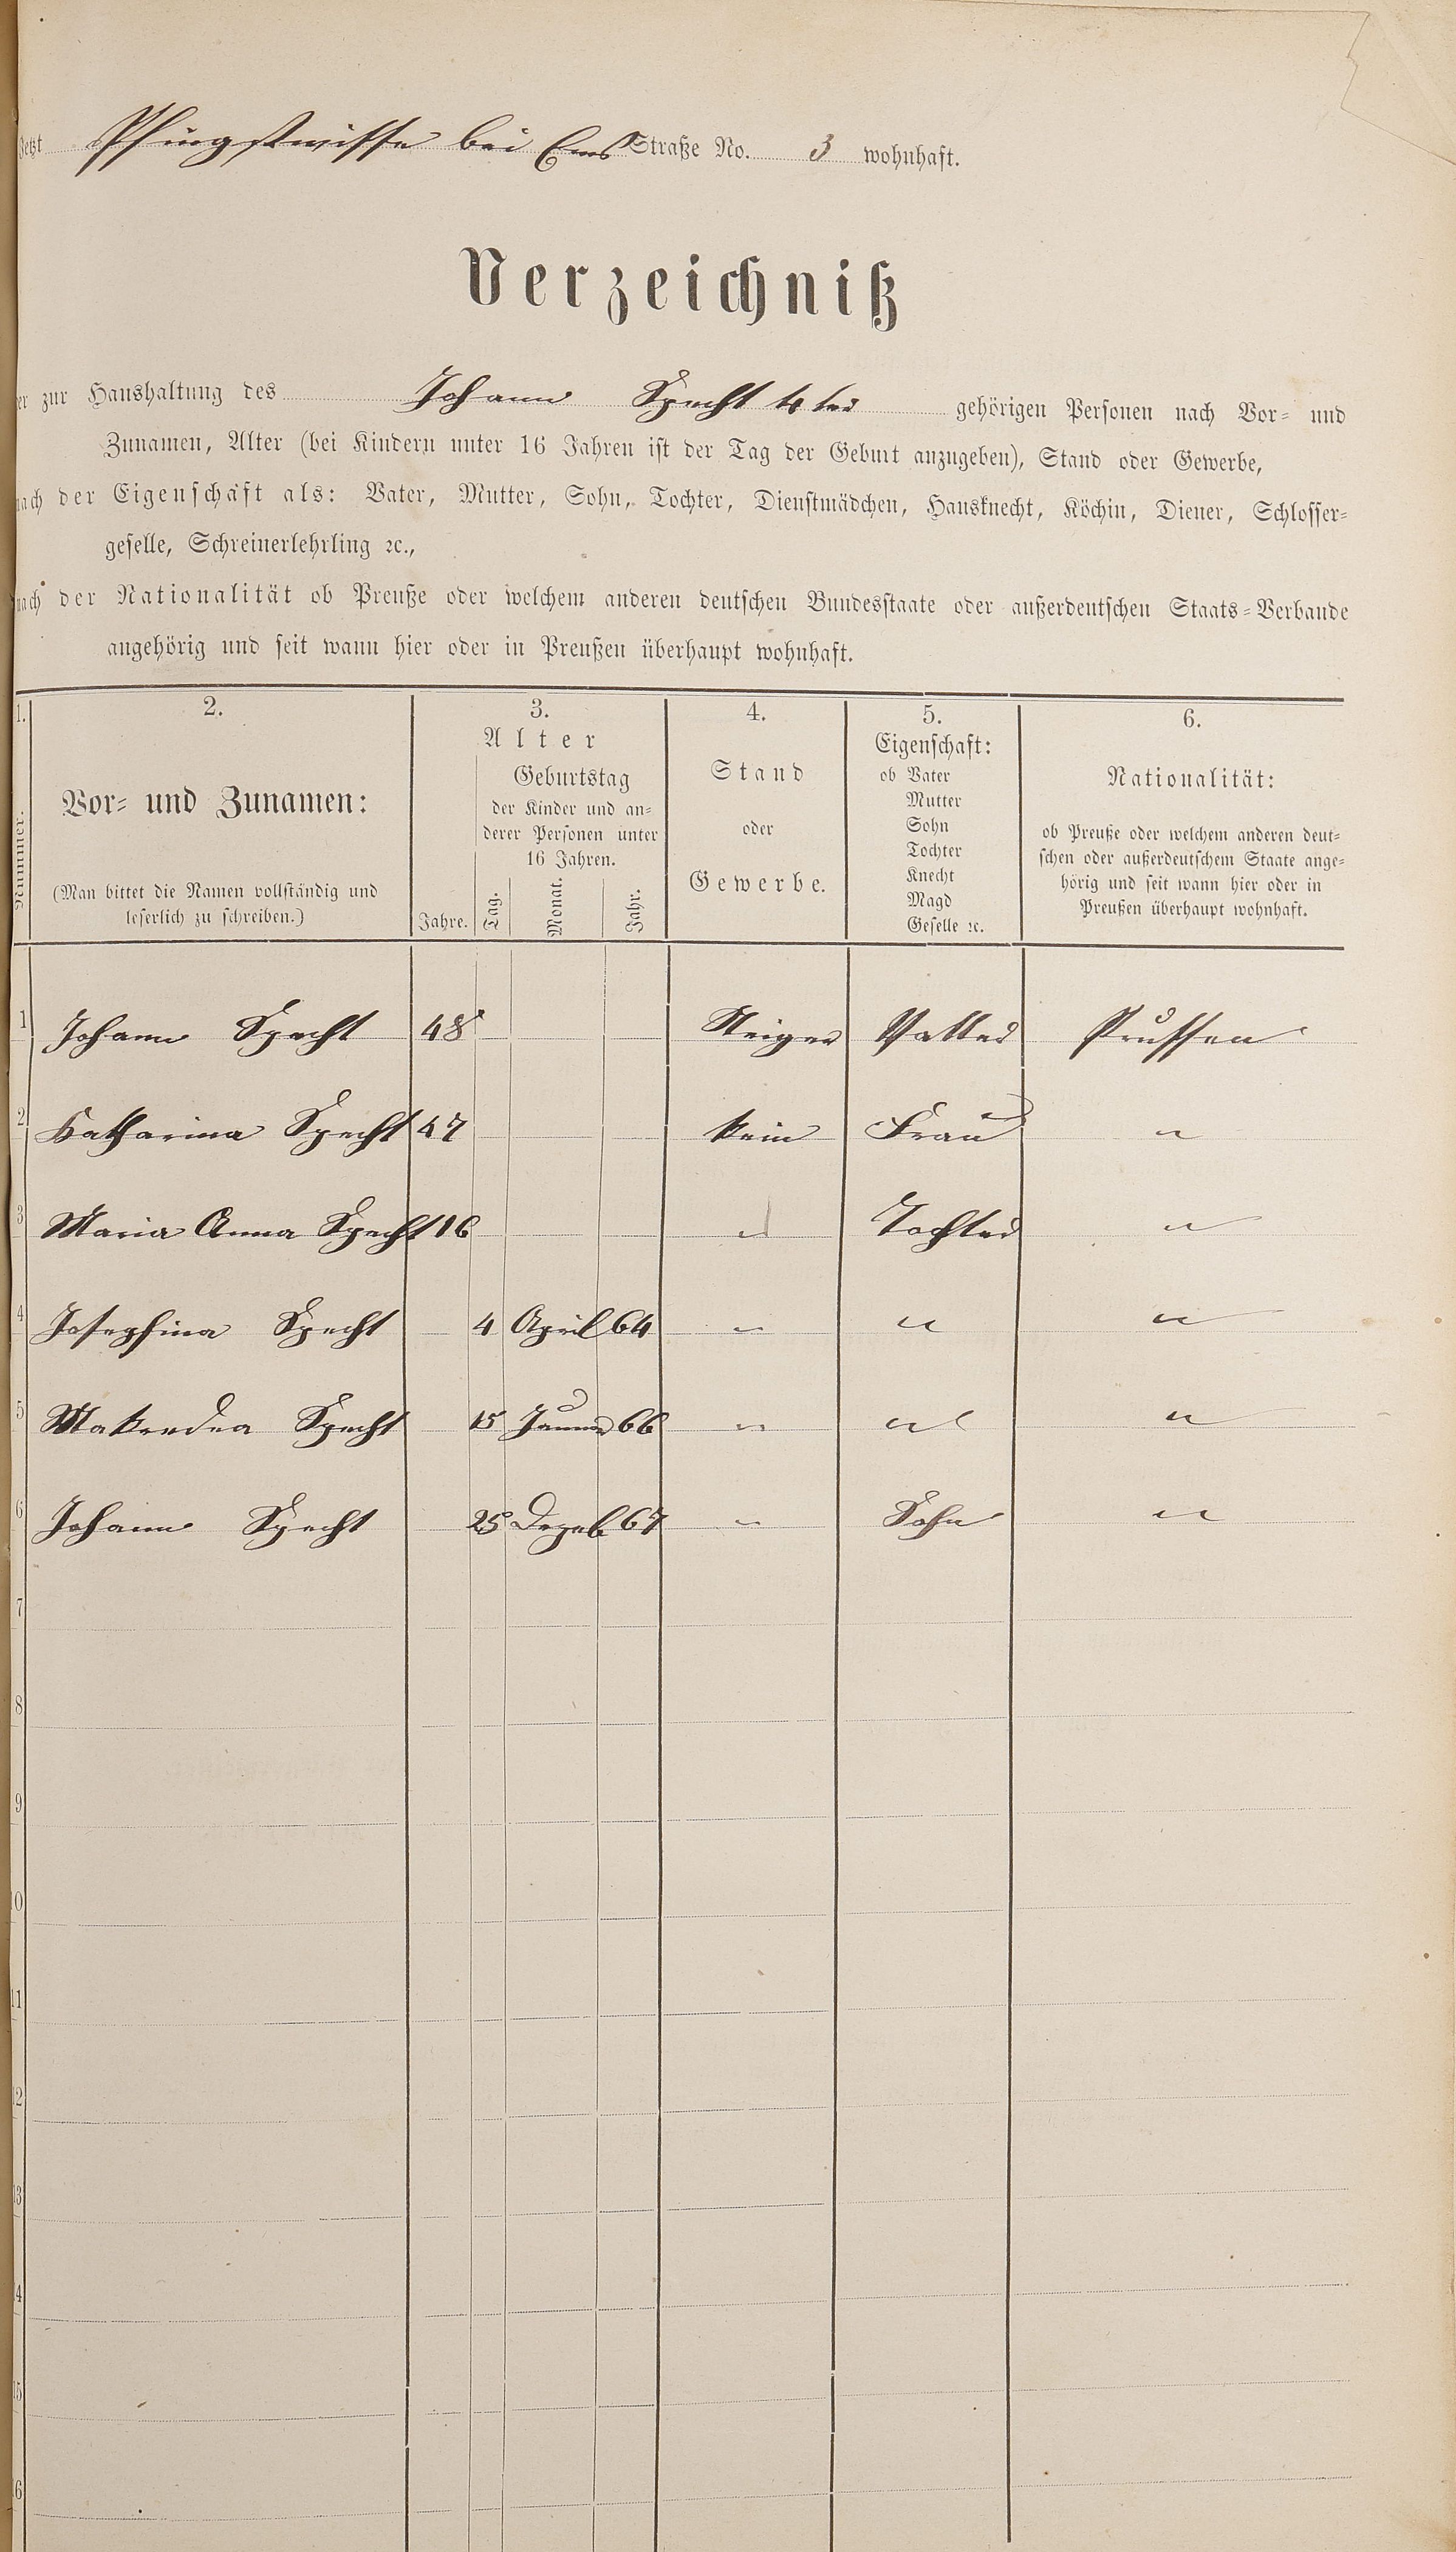 Jetzt Pfingstwisse bei Ems Straße No. 3 wohnhaft.
Verzeichniß
er zur Haushaltung des Johann Specht 4ter gehörigen Personen nach Vor- und
Zunamen, Alter (bei Kindern unter 16 Jahren ist der Tag der Geburt anzugeben), Stand oder Gewerbe,
nach der Eigenschaft als: Vater, Mutter, Sohn, Tochter, Dienstmädchen, Hausknecht, Köchin, Diener, Schlosser-
geselle, Schreinerlehrling ꝛc.,
nach der Nationalität ob Preuße oder welchem anderen deutschen Bundesstaate oder außerdeutschen Staats-Verbande
angehörig und seit wann hier oder in Preußen überhaupt wohnhaft.
1. 2. 3. 4. 5. 6.
Nummer.
Vor- und Zunamen:
(Man bittet die Namen vollständig und
leserlich zu schreiben.)
Alter
Jahre.
Geburtstag
der Kinder und an-
derer Personen unter
16 Jahren.
Tag. Monat. Jahr.
Stand
oder
Gewerbe.
Eigenschaft:
ob Vater
Mutter
Sohn
Tochter
Knecht
Magd
Geselle ꝛc.
Nationalität:
ob Preuße oder welchem anderen deut-
schen oder außerdeutschem Staate ange-
hörig und seit wann hier oder in
Preußen überhaupt wohnhaft.
1 Johann Specht 48 Steiger Vatter Prussen
2 Katharina Specht 47 kein Frau "
3 Maria Anna Specht 16 " Tochter "
4 Josephina Specht 4 April 64 " " "
5 Specht 15 66 " " "
6 Johann Specht 25 Dezeb 67 " Sohn "
7
8
9
10
11
12
13
14
15
16